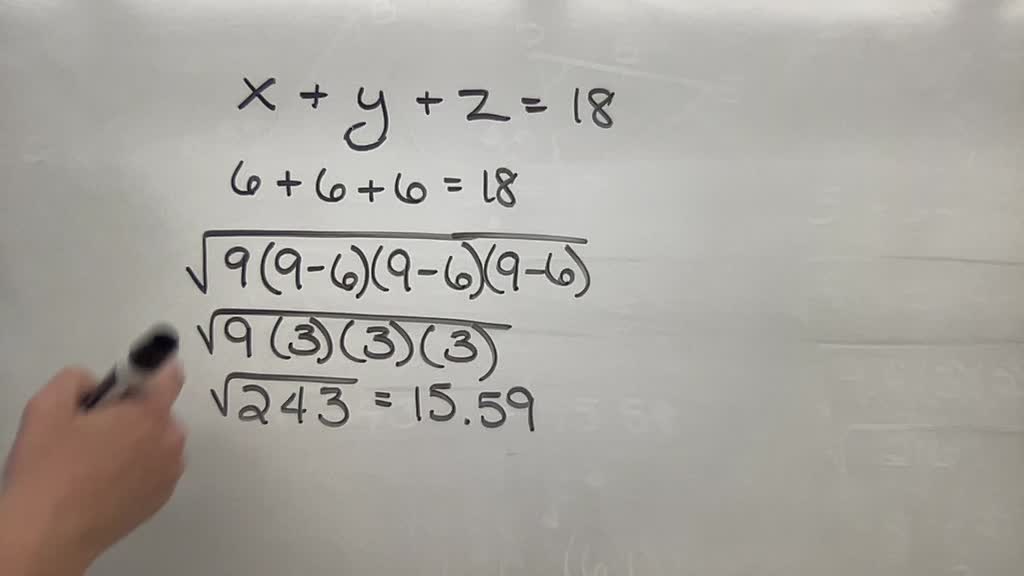 x + y + z = 18
6 + 6 + 6 = 18
√9(9-6)(9-6)(9-6)
√9(3)(3)(3)
√243 = 15.59